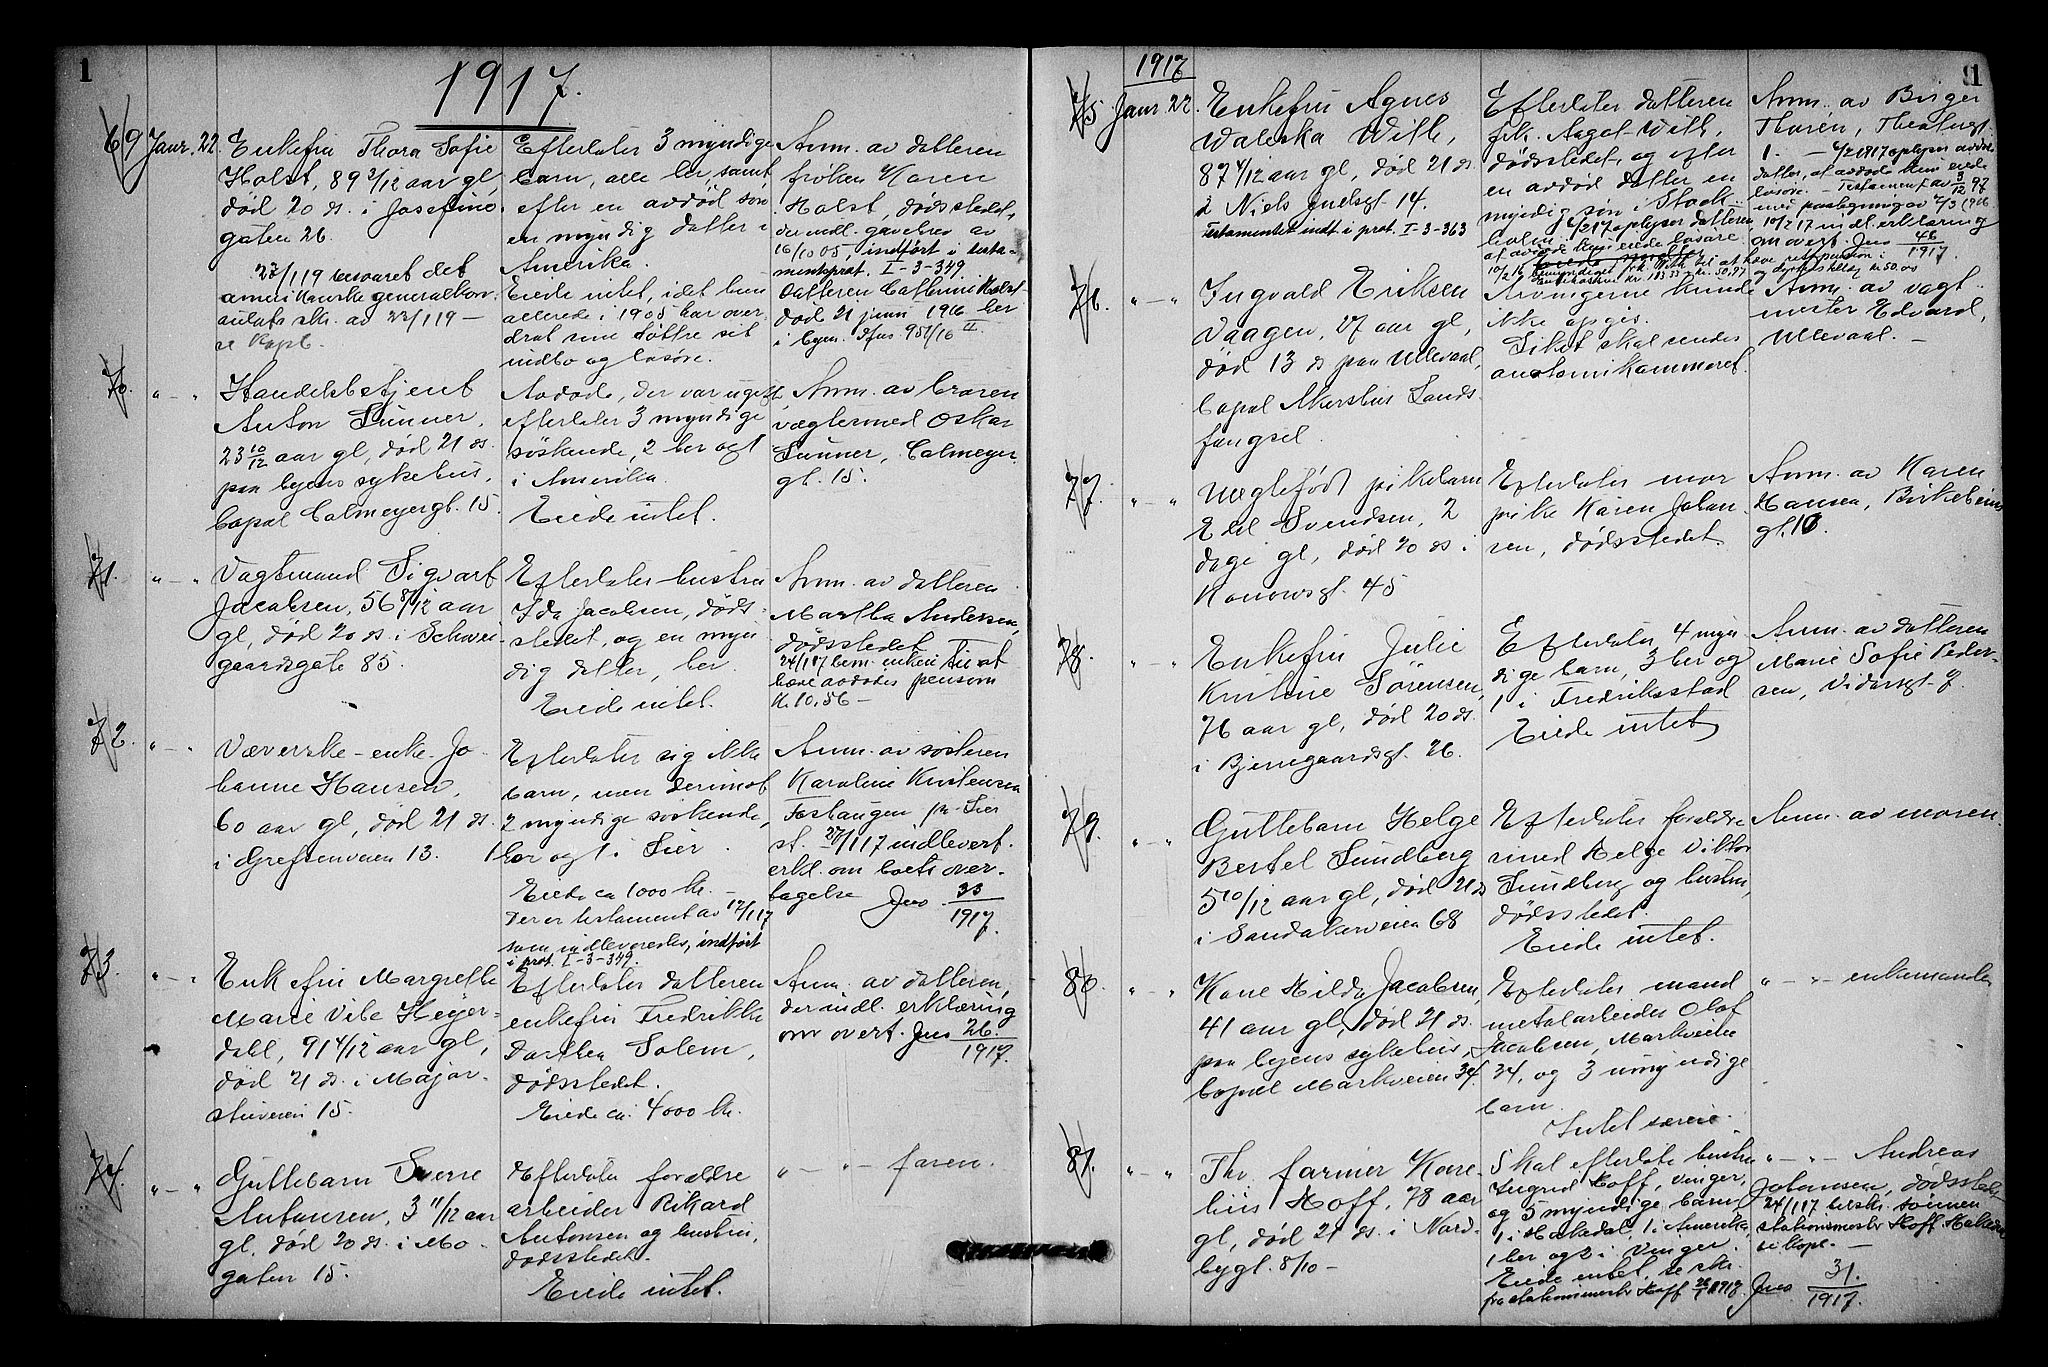 1
1917.
69
Janr. 22.
Enkefru Thora Sofie
Holst, 89 2/12 aar gl,
død 20 ds. i Josefine
gaten 26.
27/119 besvaret det
amerikanske generalkon
sulats skr. av 22/119 —
se kopb.
Efterlater 3 myndige
barn, alle her, samt
efter en avdød søn
en myndig datter i
Amerika.
Eiede intet, idet hun
allerede i 1905 har over
drat sine døttre sit
indbo og løsøre.
Anm. av datteren
frøken Karen
Holst, dødsstedet,
der indl. gavebrev av
16/10 05, indført i testa-
mentsprot. I-3-349.
Datteren Cathrine Holst
død 21 juni 1916 her
i byen. Jfns 951/16 II.
70.
" — "
Handelsbetjent
Anton Sunner,
23 10/12 aar gl, død 21 ds.
paa byens sykehus,
bopæl Calmeyergt. 15.
Avdøde, der var ugift,
efterlater 3 myndige
søskende, 2 her og 1
i Amerika.
Eiede intet.
Anm. av broren
vægtermed Oskar
Sunner, Calmeyer
gt. 15.
71.
" — "
Vagtmand Sigvart
Jacobsen, 56 8/12 aar
gl, død 20 ds. i Schwei
gaardsgate 85.
Efterlater hustru
Ida Jacobsen, døds-
stedet, og en myn
dig datter, her.
Eiede intet.
Anm. av datteren
Martha Andersen,
dødsstedet
24/117 bem. enken til at
hæve avdødes pension
kr. 10.56 —
72.
" — "
Væverske-enke Jo
hanne Hansen,
60 aar gl, død 21 ds.
i Grefsenveien 13.
Efterlater sig ikke
barn, men derimot
2 myndige søskende,
1 her og 1 i Lier.
Eiede ca 1000 kr. —
Der er testament av 17/117
som indleveredes, indført
i prot. I-3-349.
Anm. av søsteren
Karoline Kristensen
Foshaugen pr. Lier
st. 27/117 indlevert
erkl. om boets over-
tagelse Jns 33/1917.
73.
" — "
Enkefru Margrethe
Marie Vibe Heyer-
dahl, 91 4/12 aar gl,
død 21 ds. i Major-
stuveien 15.
Efterlater datteren
enkefru Fredrikke
Dorthea Solem,
dødsstedet.
Eiede ca. 4000 kr.
Anm. av datteren,
der indl. erklæring
om overt. Jns 26./1917.
74.
" — "
Guttebarn Sverre
Antonsen, 3 11/12 aar
gl, død 20 ds. i Mo-
gaten 15.
Efterlater forældre
arbeider Rikard
Antonsen og hustru,
dødsstedet.
Eiede intet.
" — " — faren.
1917
75
Janr. 22.
Enkefru Agnes
Waleska With,
87 4/12 aar gl, død 21 ds.
i Niels Juelsgt. 14.
Testamentet indt i prot. I-3-363
Efterlater datteren
frk. Aagot With,
dødsstedet, og efter
en avdød datter en
myndig søn i Stock-
holm. 6/217 oplyser datteren
at avdøde kun eiede løsøre.
Anm. av Birger
Thorén, Theatergt.
1. — 6/21917 oplyser avdødes
datter, at avdøde kun eiede
løsøre. — Testament av 9/12 97
med paategning av 2/3 1916
10/217 indl. erklæring
om overt. Jns 46/1917.
76.
" — "
Ingvald Eriksen
Vaagen, 27 aar gl,
død 13 ds paa Ullevaal,
bopæl Akershus Lands
fængsel.
Arvingerne kunde
ikke opgis.
Liket skal sendes
anatomikammeret.
Anm. av vagt-
mester Edvard,
Ullevaal. —
77.
" — "
Uegtefødt pikebarn
Edel Svendsen, 2
dage gl, død 20 ds i
Konowsgt. 45
Efterlater mor
pike Karen Johan
sen, dødsstedet.
Anm. av Karen
Hansen, Birkebeiner
gt. 10.
78.
" — "
Enkefru Julie
Kristine Sørensen,
76 aar gl, død 20 ds.
i Bjerregaardsgt. 26.
Efterlater 4 myn
dige barn, 3 her og
1 i Fredriksstad
Eiede intet
Anm. av datteren
Marie Sofie Peder-
sen, Vidarsgt. 9.
79.
" — "
Guttebarn Helge
Bertel Sundberg
5 10/12 aar gl, død 21 ds
i Sandakerveien 68
Efterlater forældre
smed Helge Viktor
Sundberg og hustru,
dødsstedet.
Eiede intet.
Anm. av moren.
80.
" — "
Kone Hilda Jacobsen,
41 aar gl, død 21 ds.
paa byens sykehus,
bopæl Markveien 34.
Efterlater mand
metalarbeider Olaf
Jacobsen, Markveien
34, og 3 umyndige
barn.
Intet særeie.
" — " — enkemanden
81.
" — "
Fhv. farmer Kare-
lius Hoff, 78 aar
gl, død 21 ds. i Nord-
bygt. 8/10 —
Skal efterlate hustru
Ingrid Hoff, Vinger,
og 5 myndige barn,
1 i Hakedal, 1 i Amerika,
1 her og 2 i Vinger.
Eiede intet, se skr.
fra stationsmester Hoff 26/1 1917.
" — " — Andreas
Johansen, dødsstedet
24/117 tilskr. sønnen
stationsmester Hoff Hakedal
se kopb. —
Jns 31./1917.